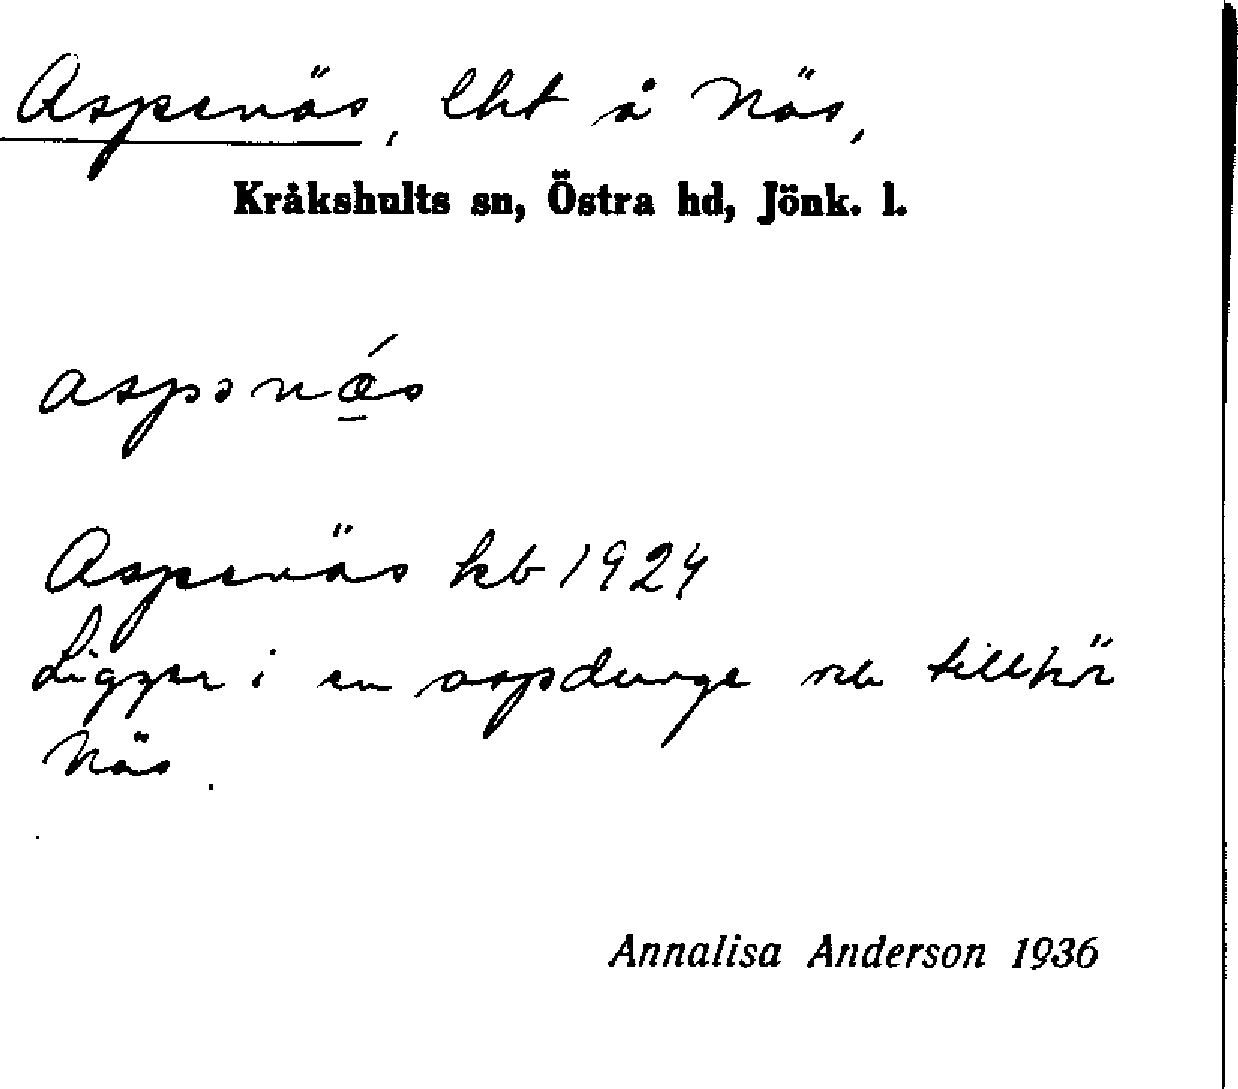 Aspenäs, lht å Näs,
Kråkshults sn, Östra hd, Jönk. l.
aspənǽ̱s
Aspenäs kb 1924
Ligger i en aspdunge och tillhör
Näs.
Annalisa Anderson 1936